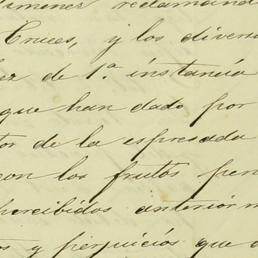 Jimenez reclamand
Cruces, y los divers
ez de 1.ª instancia
que han dado por
tor de la espresada
con los frutos pen
percibidos anteriorm
os y perjuicios que